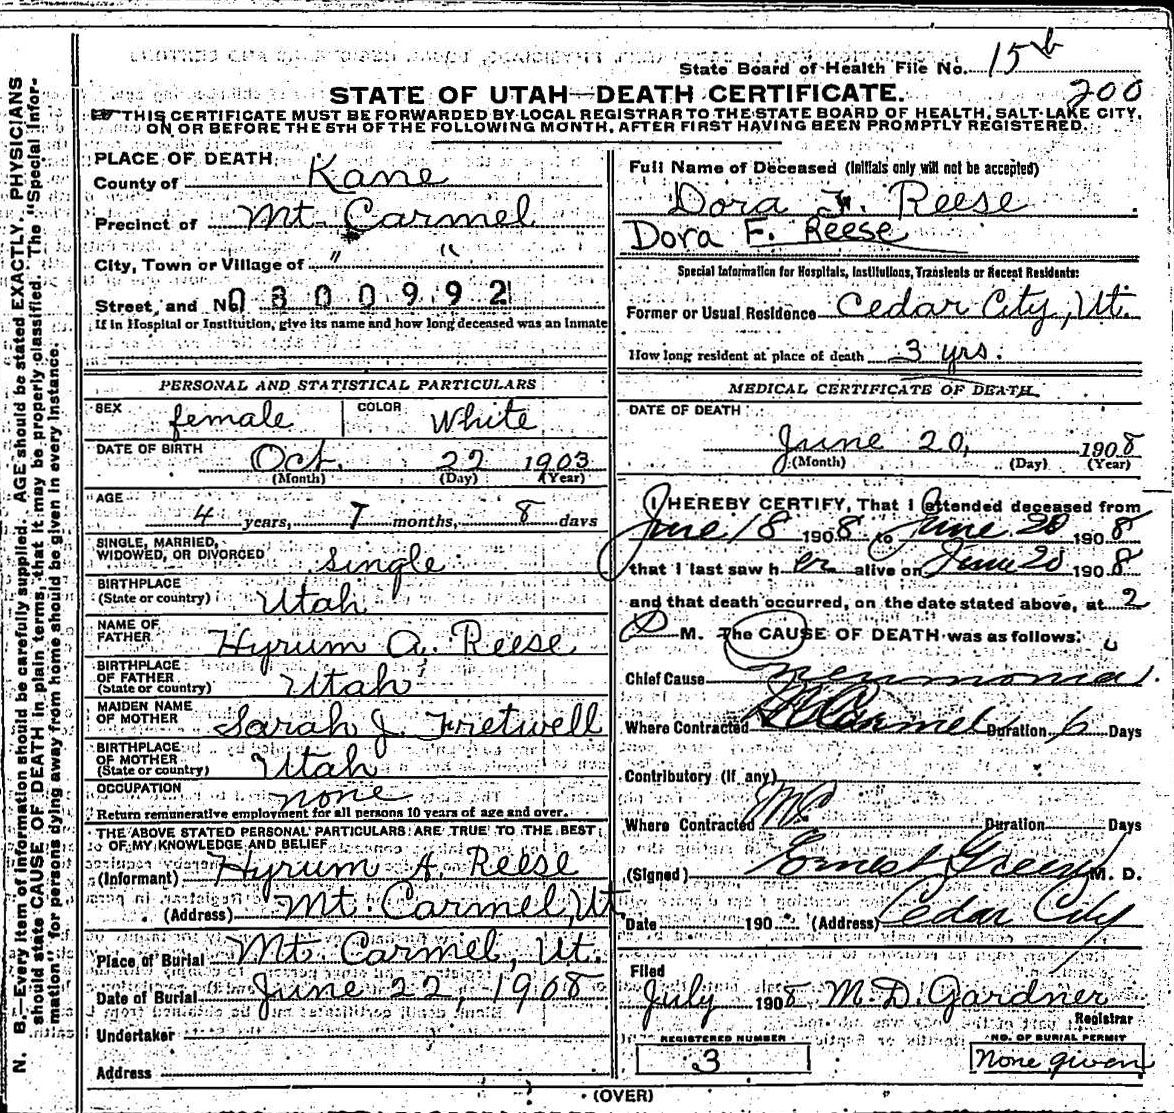 State Board of Health File No. 15 b
200
STATE OF UTAH—DEATH CERTIFICATE.
THIS CERTIFICATE MUST BE FORWARDED BY LOCAL REGISTRAR TO THE STATE BOARD OF HEALTH, SALT LAKE CITY,
ON OR BEFORE THE 5TH OF THE FOLLOWING MONTH, AFTER FIRST HAVING BEEN PROMPTLY REGISTERED.
N. B.—Every item of information should be carefully supplied. AGE should be stated EXACTLY. PHYSICIANS
should state CAUSE OF DEATH in plain terms, that it may be properly classified. The "Special Infor-
mation" for persons dying away from home should be given in every instance.
PLACE OF DEATH
County of Kane
Precinct of Mt. Carmel
City, Town or Village of " "
Street, and No. 0300992
If in Hospital or Institution, give its name and how long deceased was an inmate
PERSONAL AND STATISTICAL PARTICULARS
SEX female COLOR White
DATE OF BIRTH Oct. 22 1903
(Month) (Day) (Year)
AGE
4 years, 7 months, 8 days
SINGLE, MARRIED,
WIDOWED, OR DIVORCED single
BIRTHPLACE
(State or country) Utah
NAME OF
FATHER Hyrum A. Reese
BIRTHPLACE
OF FATHER
(State or country) Utah
MAIDEN NAME
OF MOTHER Sarah J. Fretwell
BIRTHPLACE
OF MOTHER
(State or country) Utah
OCCUPATION none
Return remunerative employment for all persons 10 years of age and over.
THE ABOVE STATED PERSONAL PARTICULARS ARE TRUE TO THE BEST
OF MY KNOWLEDGE AND BELIEF
(Informant) Hyrum A. Reese
(Address) Mt. Carmel, Ut.
Place of Burial Mt. Carmel, Ut.
Date of Burial June 22, 1908
Undertaker
Address
Full Name of Deceased (Initials only will not be accepted)
Dora F. Reese
Dora F. Reese
Special Information for Hospitals, Institutions, Transients or Recent Residents:
Former or Usual Residence Cedar City, Ut.
How long resident at place of death 3 yrs.
MEDICAL CERTIFICATE OF DEATH
DATE OF DEATH
June 20, 1908
(Month) (Day) (Year)
I HEREBY CERTIFY, That I attended deceased from
June 18 1908 to June 20 1908
that I last saw her alive on June 20 1908
and that death occurred, on the date stated above, at 2
P M. The CAUSE OF DEATH was as follows:
Chief Cause Pneumonia
Where Contracted Mt Carmel Duration 6 Days
Contributory (If any)
Where Contracted Duration Days
(Signed) Ernest Green M. D.
Date 190 (Address) Cedar City
Filed
July 1908 M. D. Gardner
Registrar
REGISTERED NUMBER
3
NO. OF BURIAL PERMIT
None given
(OVER)